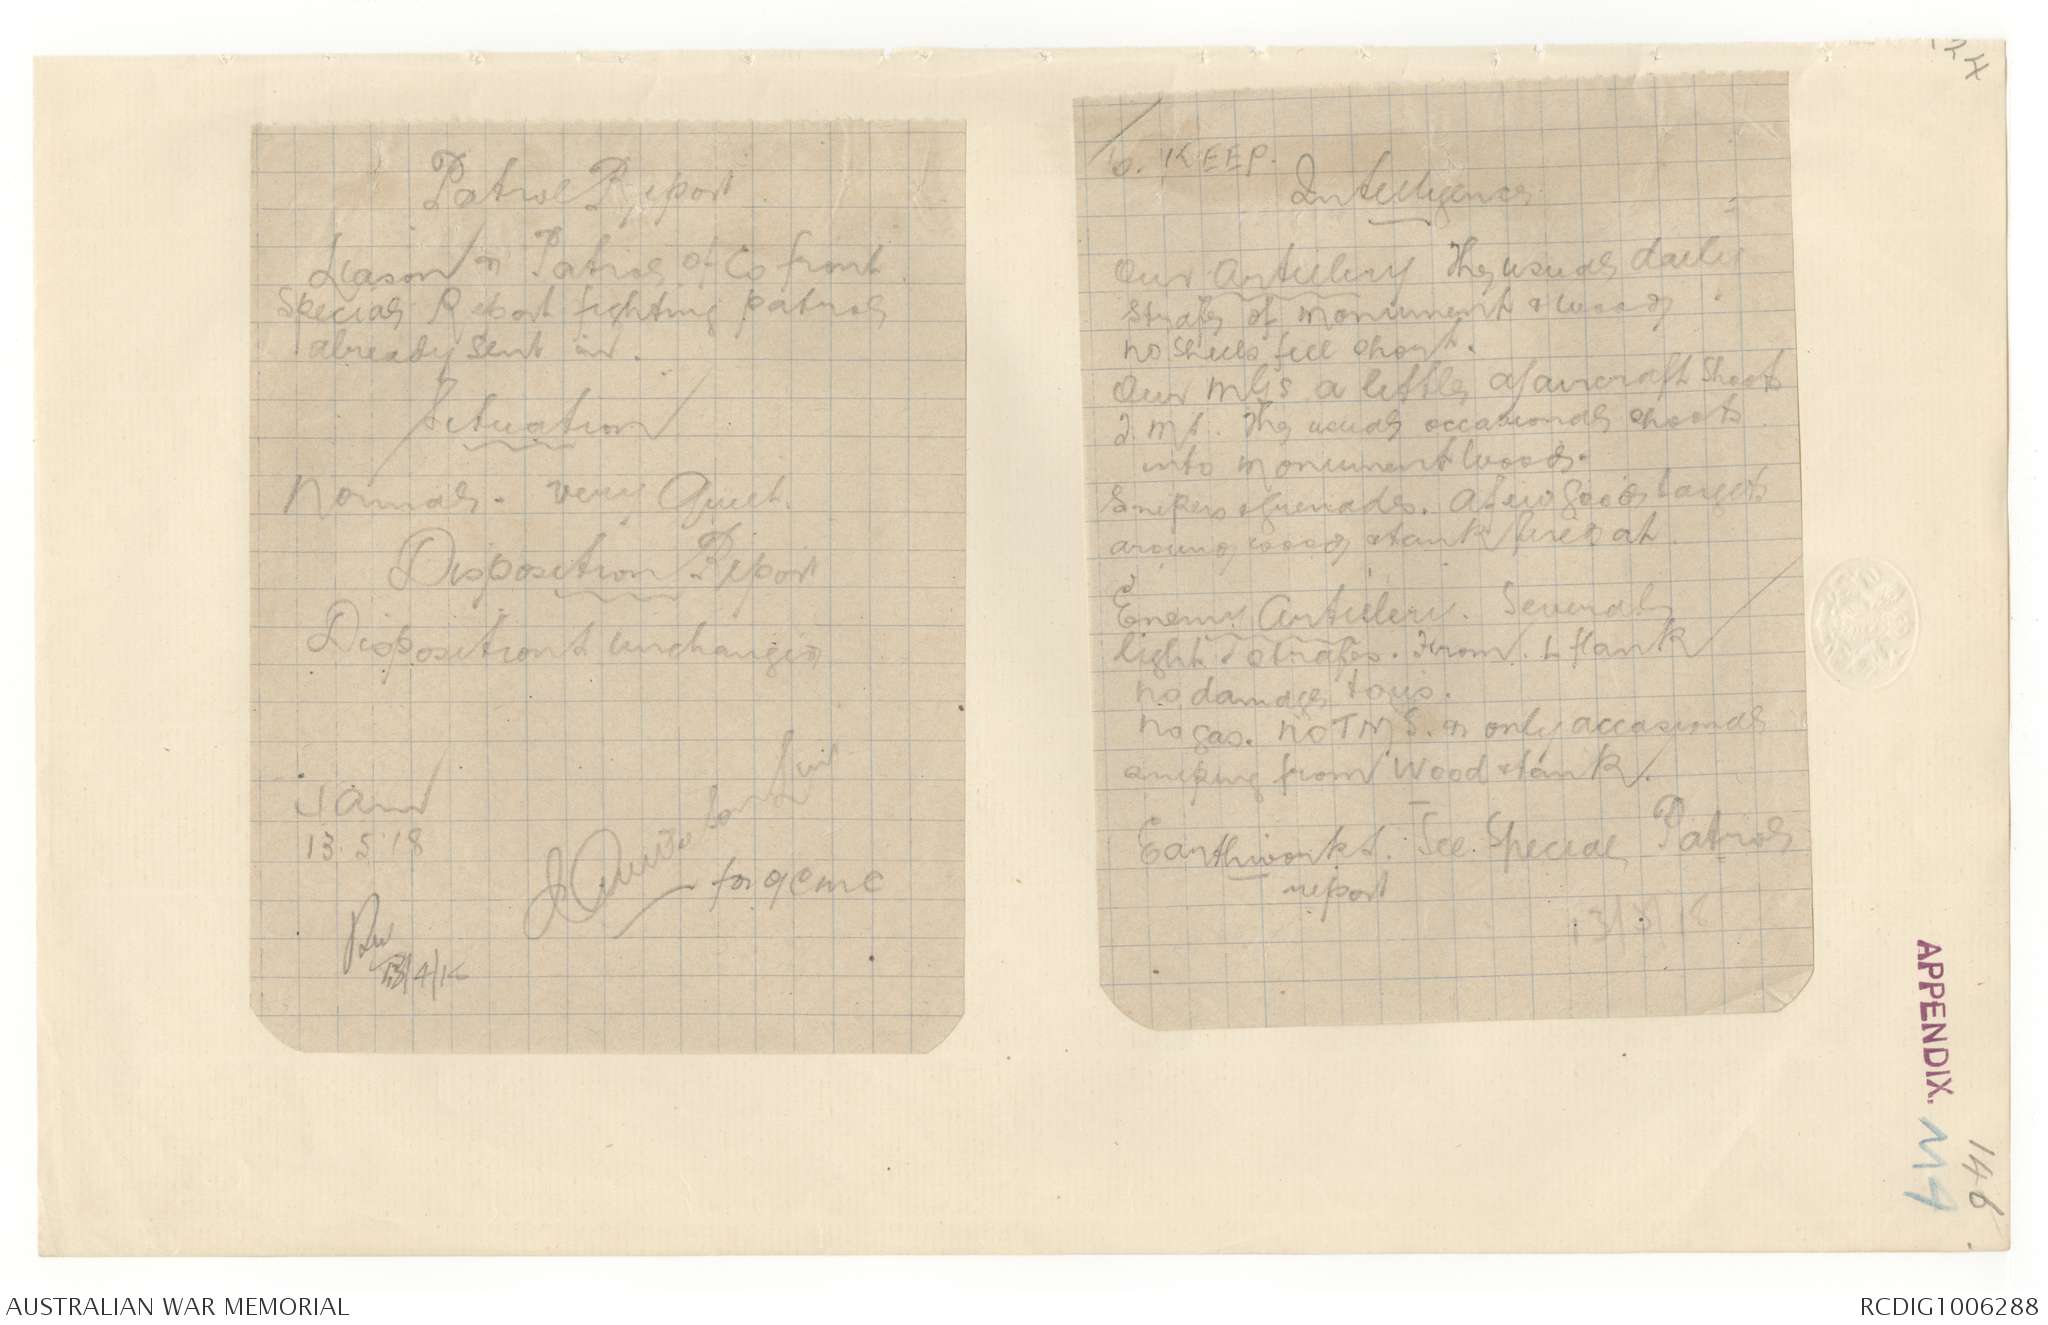 Patrol Report
Liason & Patrol of Co front.
Special Report fighting patrol
already sent in.
Situation
Normal. Very Quiet.
Disposition Report
Dispositions unchanged
13.5.18
for OC MC
KEEP.
Intelligence
Our Artillery The usual daily
strafe of monument & wood
no shells fell short.
Our MGs a little a/aircraft shoots
The usual occasional shoots
into monument wood.
Snipers & grenades. A few good targets
around wood & tank fired at.
Enemy Artillery. Several
light strafes. From L flank
no damage to us.
No gas. No TMS. & only occasional
sniping from Wood & tank.
Earthworks. See Special Patrol
report
APPENDIX.
M4
146
AUSTRALIAN WAR MEMORIAL
RCDIG1006288